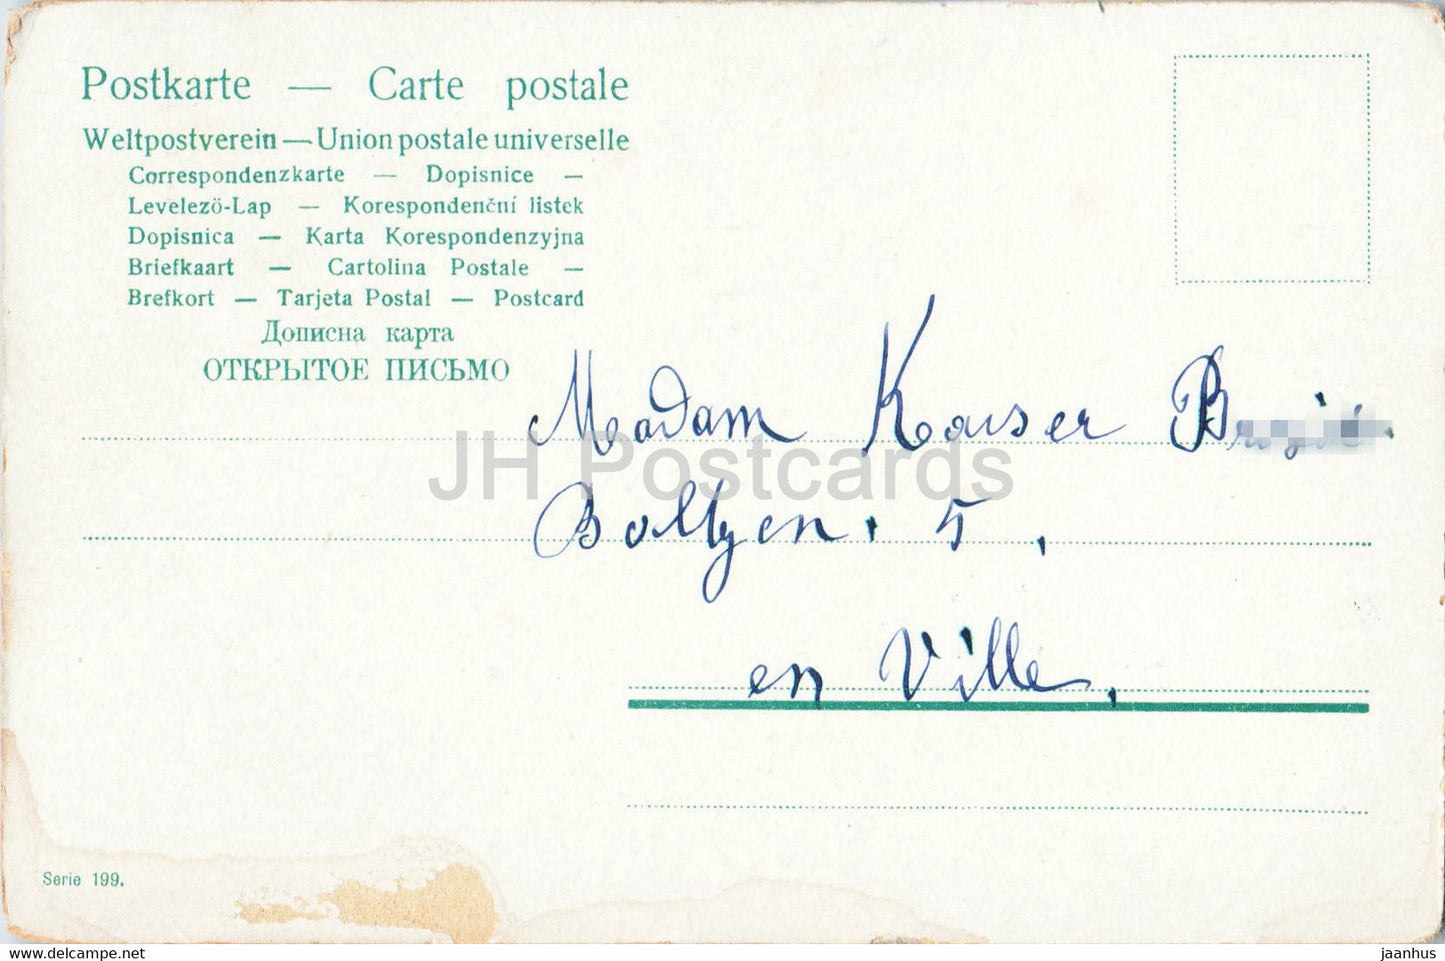 Postkarte — Carte postale
Weltpostverein — Union postale universelle
Correspondenzkarte — Dopisnice —
Levelezö-Lap — Korespondenční listek
Dopisnica — Karta Korespondenzyjna
Briefkaart — Cartolina Postale —
Brefkort — Tarjeta Postal — Postcard
Дописна карта
ОТКРЫТОЕ ПИСЬМО
Madam Kaiser
JH Postcards
Boltzen. 5,
en Ville,
Serie 199.
https://www.delcampe.net
jaanhus